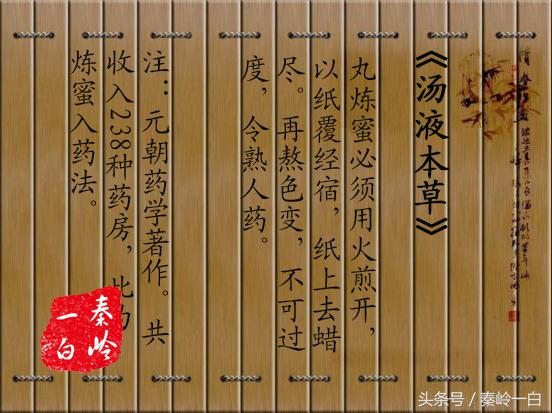 《汤液本草》
丸炼蜜必须用火煎开，
以纸覆经宿，纸上去蜡
尽。再熬色变，不可过
度，令熟人药。
注：元朝药学著作。共
收入238种药房，此乃
炼蜜入药法。
秦岭
一白
头条号／秦岭一白